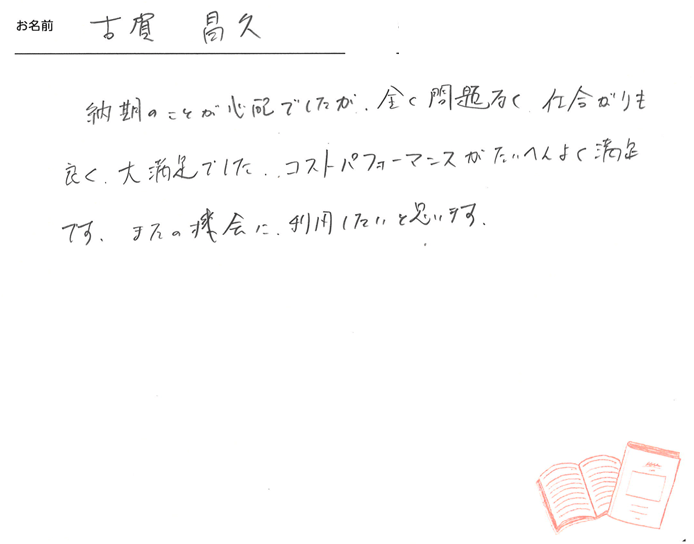 お名前 古賀 昌久
納期のことが心配でしたが、全く問題なく、仕合がりも
良く、大満足でした。コストパフォーマンスがたいへんよく満足
です。またの機会に、利用したいと思います。